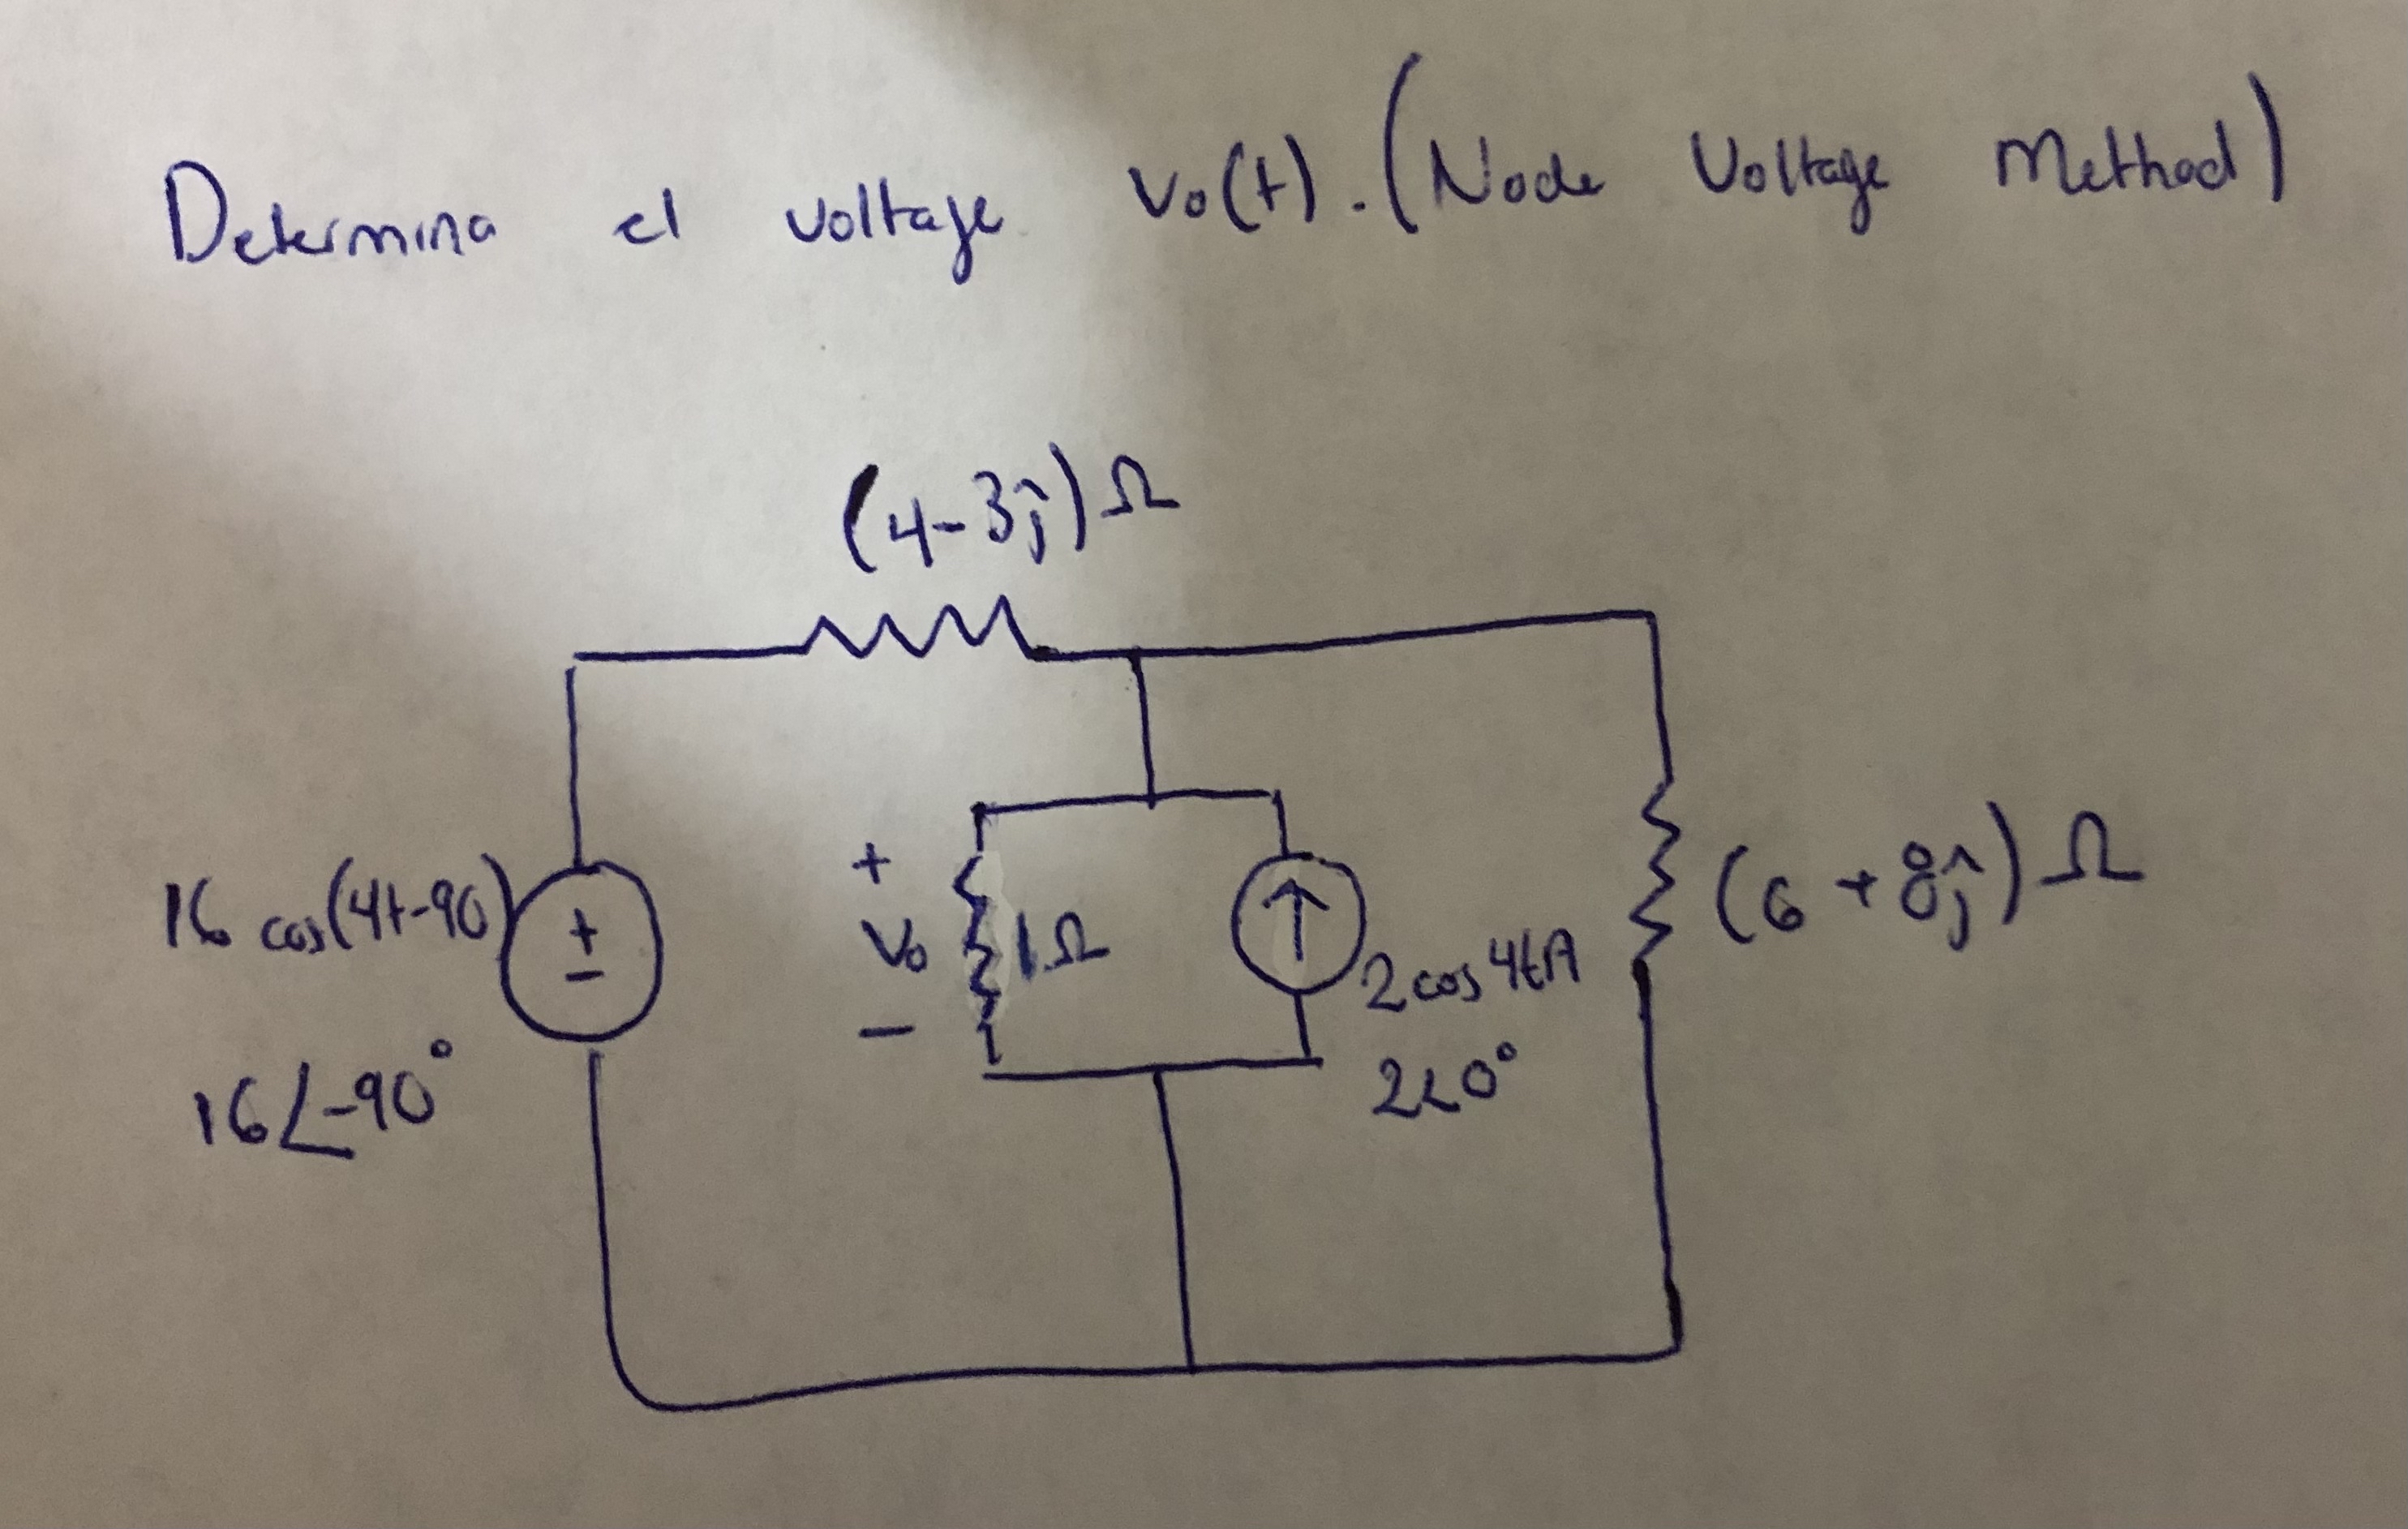 Determina el voltage Vo(t). (Node Voltage Method)
(4-3ĵ)Ω
16 cos(4t-90)
+
-
16∠-90°
+
Vo
-
1Ω
2cos4tA
2∠0°
(6+8ĵ)Ω